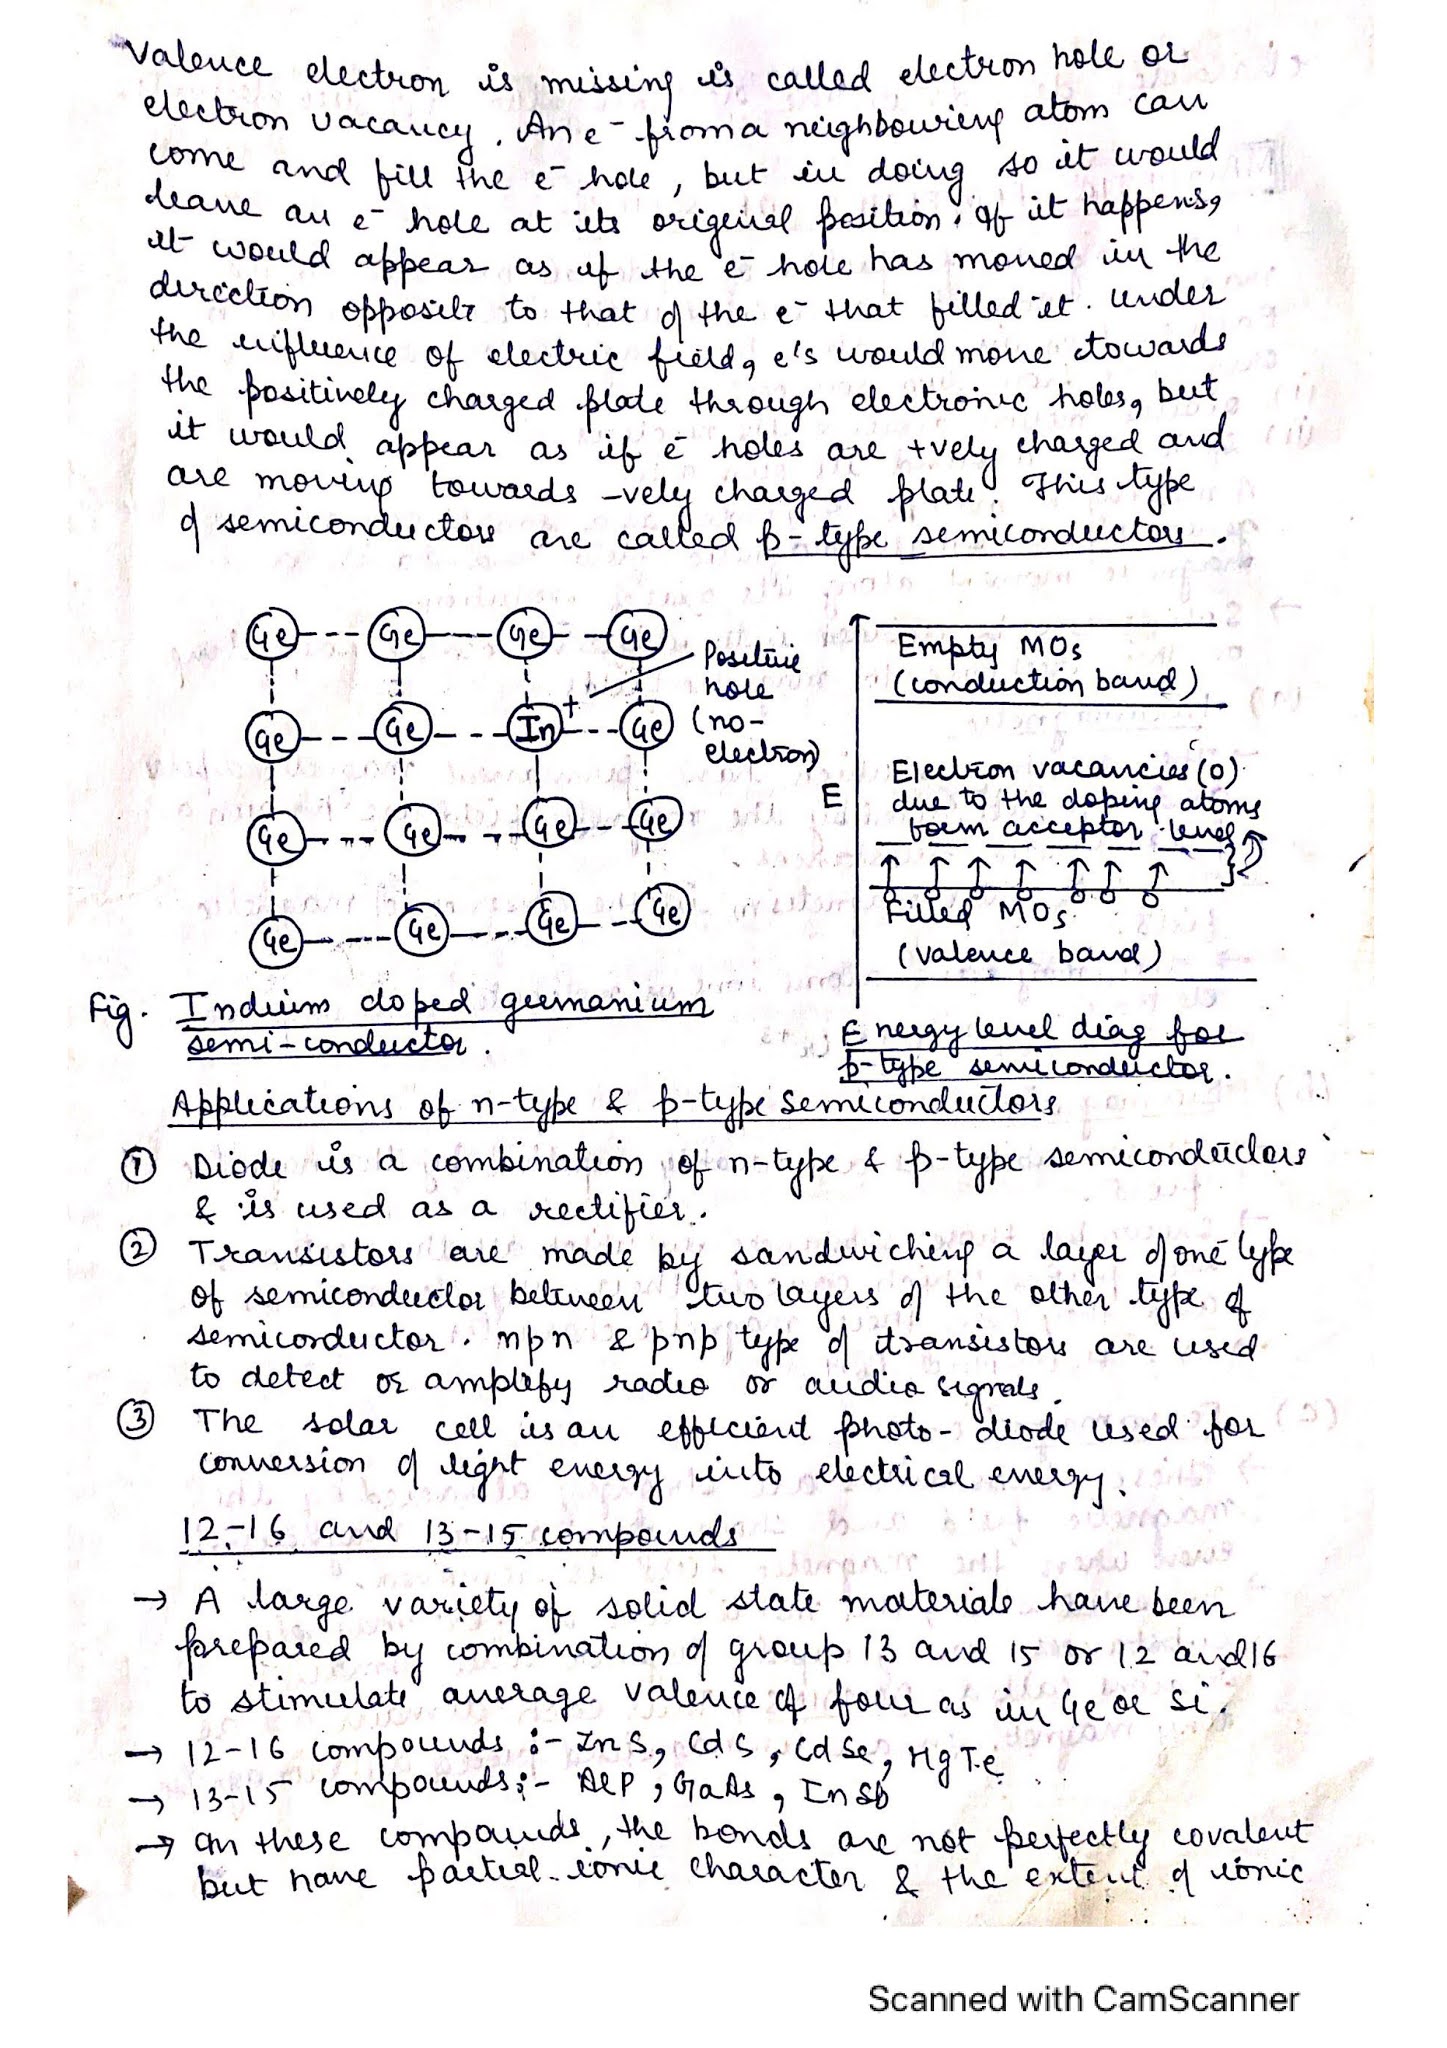 Valence electron is missing is called electron hole or
electron vacancy. An e⁻ from a neighbouring atom can
come and fill the e⁻ hole, but in doing so it would
leave an e⁻ hole at its original position. If it happens,
it would appear as if the e⁻ hole has moved in the
direction opposite to that of the e⁻ that filled it. Under
the influence of electric field, e's would move towards
the positively charged plate through electronic holes, but
it would appear as if e⁻ holes are +vely charged and
are moving towards -vely charged plate. This type
of semiconductors are called p-type semiconductors.
Ge Ge Ge Ge
Positive
hole
(no-
electron)
Ge Ge In + Ge
Ge Ge Ge Ge
Ge Ge Ge Ge
Fig. Indium doped germanium
semi-conductor.
E
Empty MOs
(conduction band)
Electron vacancies (0)
due to the doping atoms
form acceptor level
Filled MOs
(valence band)
Energy level diag for
p-type semiconductor.
Applications of n-type & p-type semiconductors
① Diode is a combination of n-type & p-type semiconductors
& is used as a rectifier.
② Transistors are made by sandwiching a layer of one type
of semiconductor between two layers of the other type of
semiconductor. npn & pnp type of transistors are used
to detect or amplify radio or audio signals.
③ The solar cell is an efficient photo-diode used for
conversion of light energy into electrical energy.
12-16 and 13-15 compounds
→ A large variety of solid state materials have been
prepared by combination of group 13 and 15 or 12 and 16
to stimulate average valence of four as in Ge or Si.
→ 12-16 compounds :- ZnS, CdS, CdSe, HgTe
→ 13-15 compounds :- AlP, GaAs, InSb
→ In these compounds, the bonds are not perfectly covalent
but have partial ionic character & the extent of ionic
Scanned with CamScanner